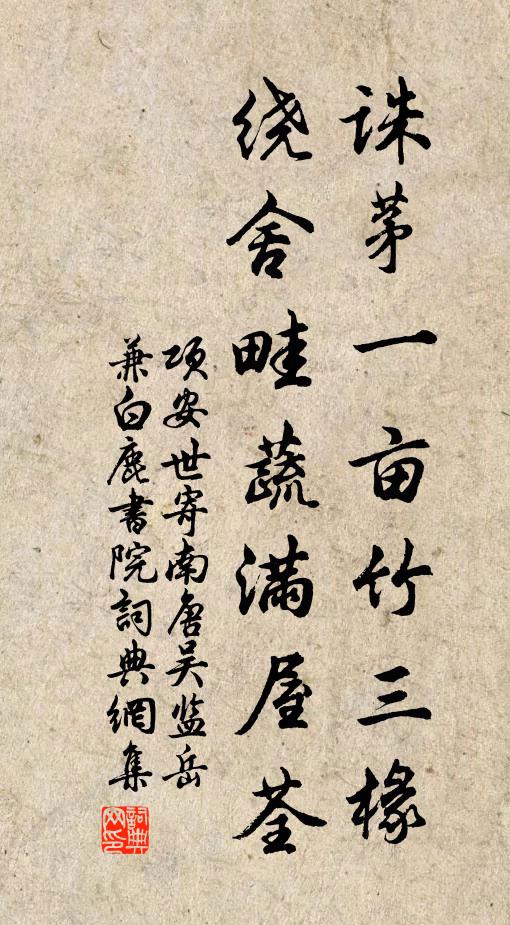 诛茅一亩竹三椽
绕舍畦蔬满屋荃
项安世寄南唐吴监岳
兼白鹿书院詞典網集
詞典网印